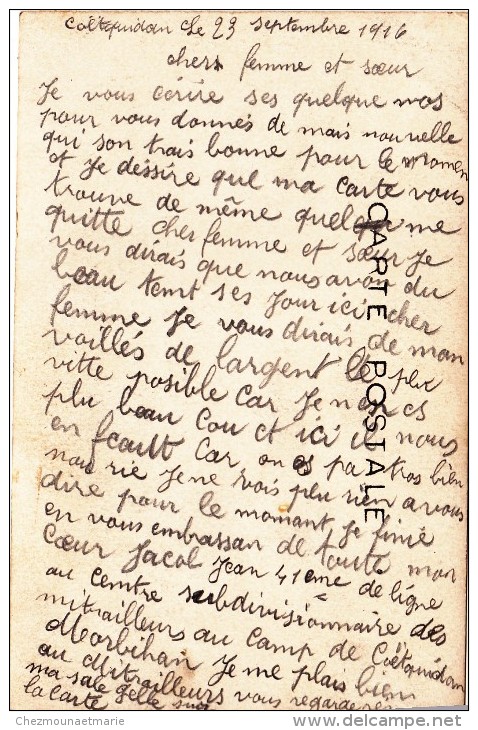 Coëtquidan Le 23 septembre 1916
chers femme et sœur
Je vous écrire ses quelque mos
pour vous donnés de mais nouvelle
qui son trais bonne pour le momen
et Je déssire que ma carte vous
trouve de même quel me
quitte cher femme et sœur Je
vous dirais que nous avon du
beau temt ses Jour ici cher
femme Je vous dirais de mon
voillés de largent le plu
vitte posible car Je nan es
plu beau cou et ici il nous
en fcault car on es pa tros bien
nou rie Je ne vois plu rien a vous
dire pour le momant Je finie
en vous embrassan de toute mon
Cœur Jacol Jean 41eme de ligne
au centre subdivisionnaire des
mitrailleurs au camp de Coëtquidan
Morbihan Je me plais bien
au Mitrailleurs vous regarderes
ma sale gelle sur
la carte
CARTE POSTALE
Chezmounaetmarie
www.delcampe.net